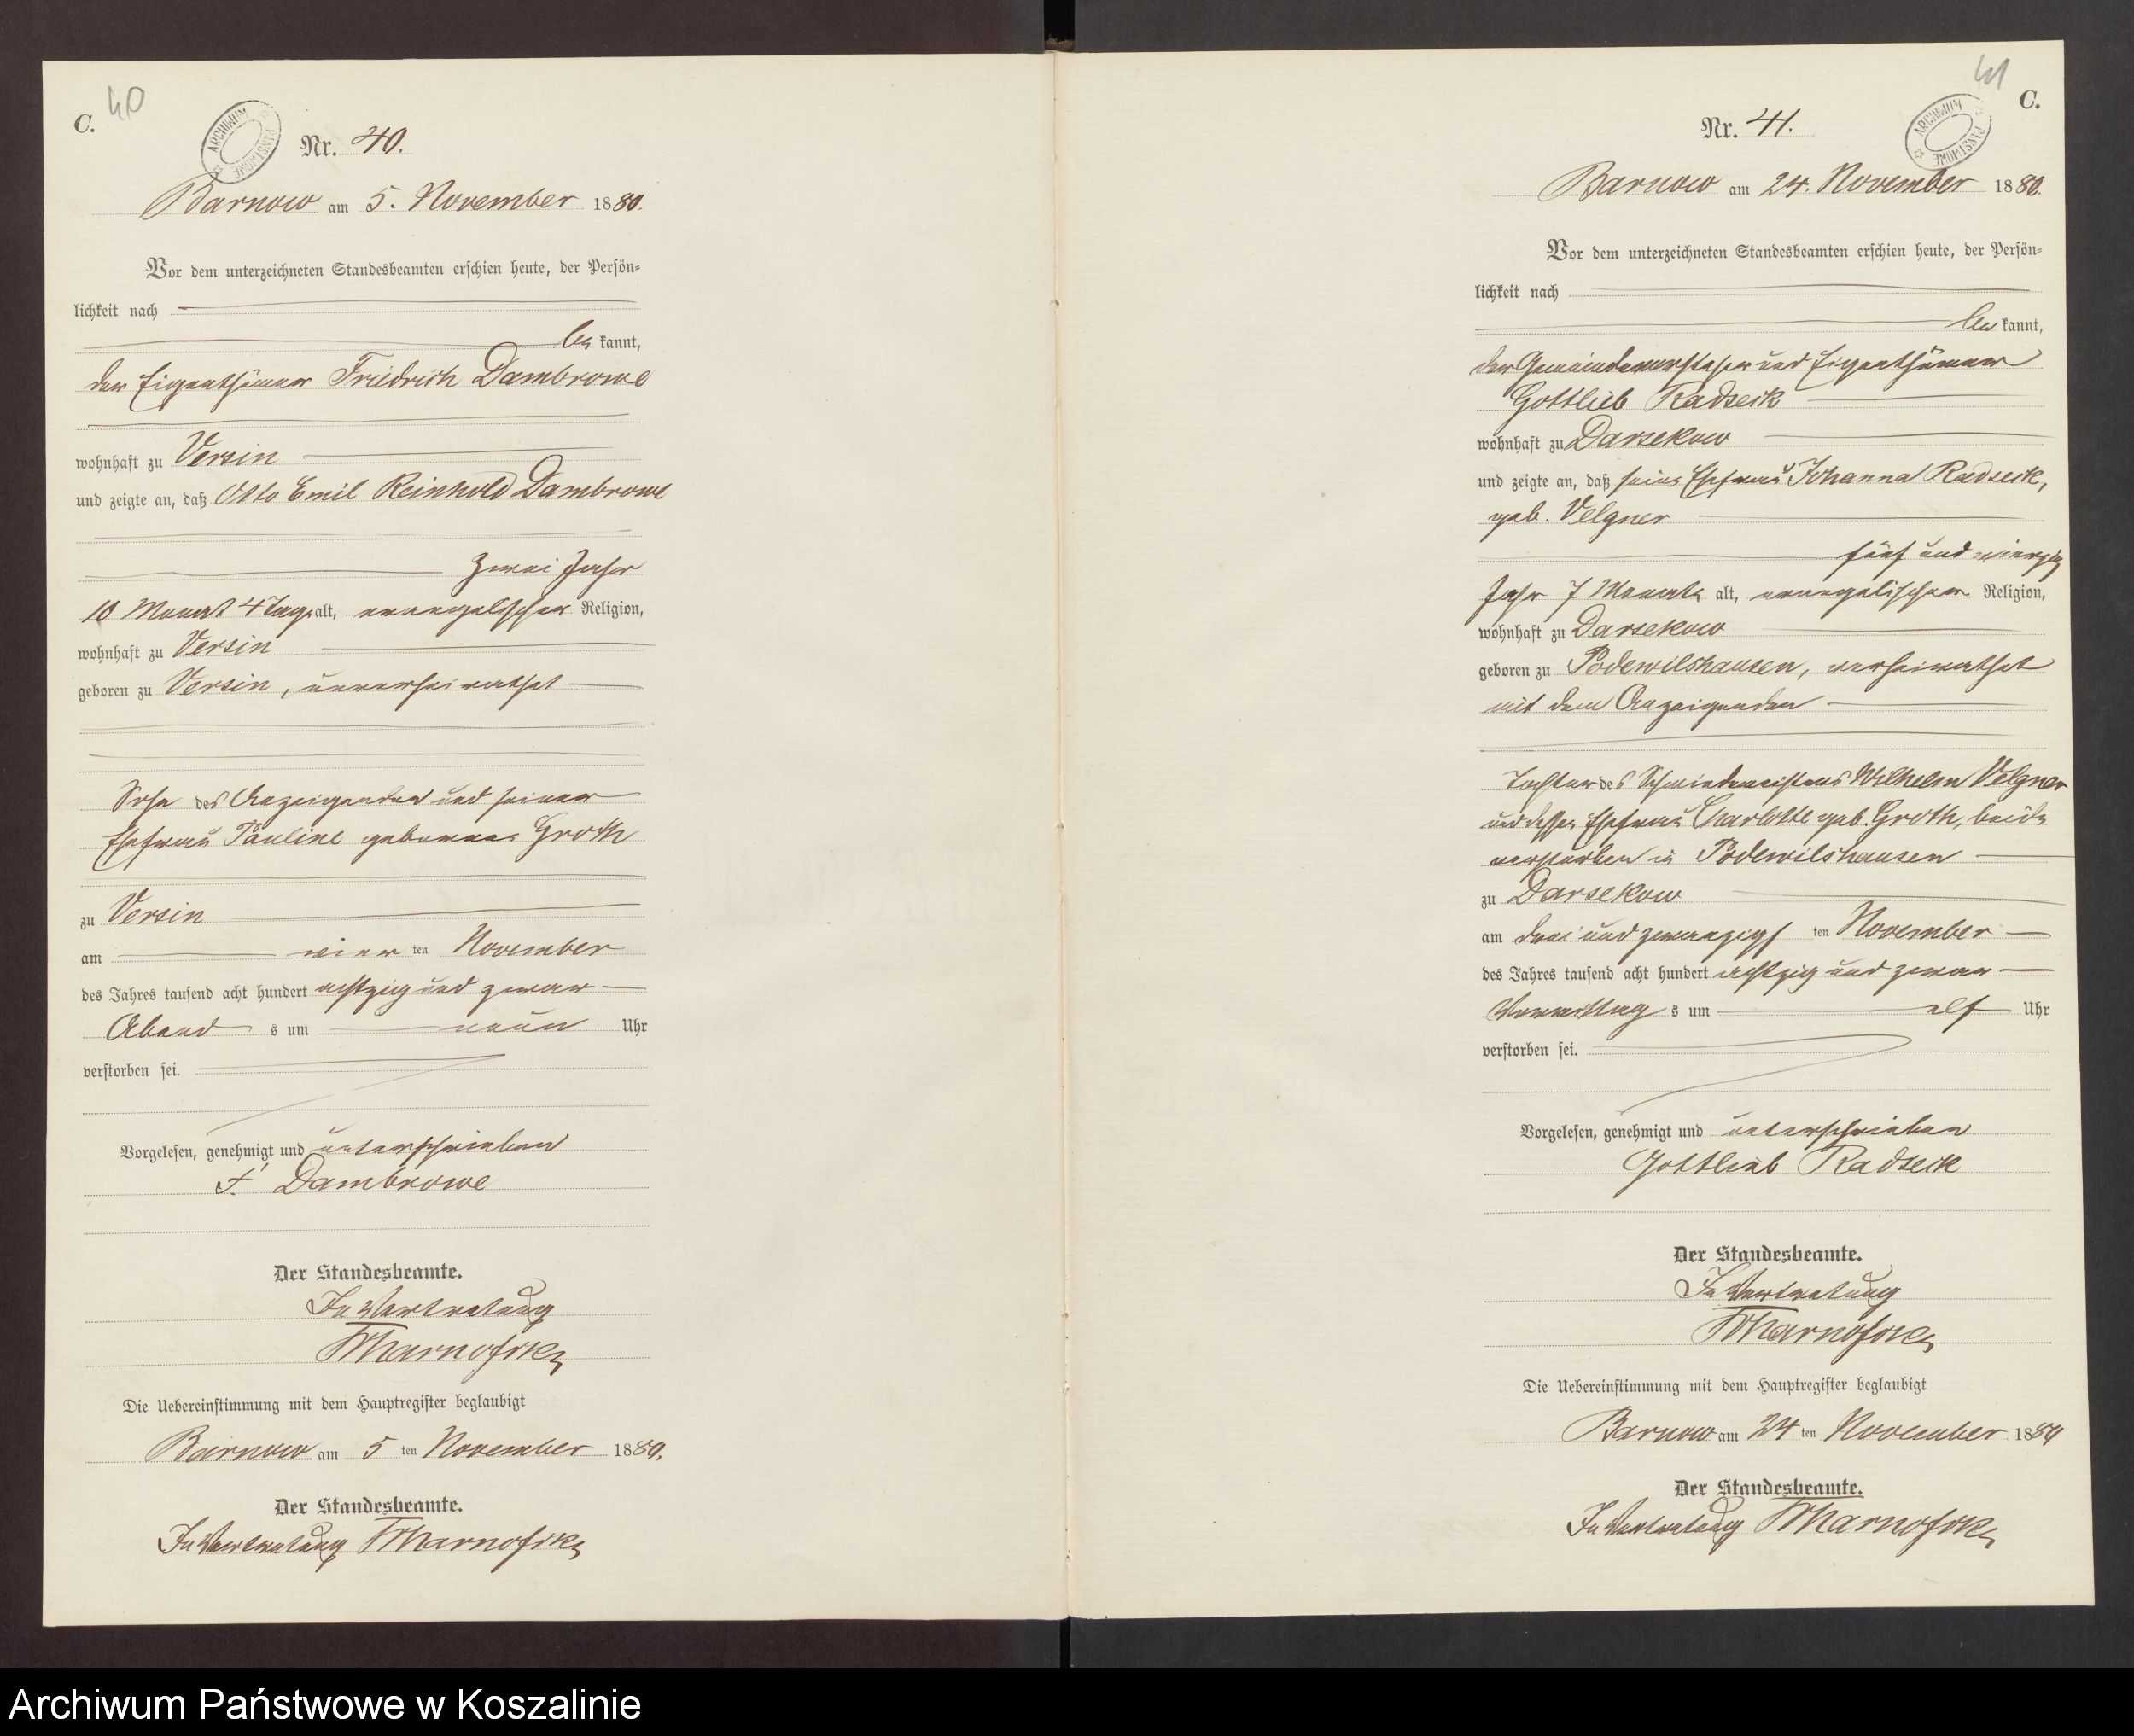 C. 40
ARCHIWUM PAŃSTWOWE
Nr. 40.
Barnow am 5. November 1880.
Vor dem unterzeichneten Standesbeamten erschien heute, der Persön-
lichkeit nach
be kannt,
der Eigenthümer Friedrich Dambrowe
wohnhaft zu Versin
und zeigte an, daß Otto Emil Reinhold Dambrowe
zwei Jahr
10 Monat 4 Tage alt, evangelischer Religion,
wohnhaft zu Versin
geboren zu Versin, unverheirathet
Sohn des Anzeigenden und seiner
Ehefrau Pauline geborene Groth
zu Versin
am vier ten November
des Jahres tausend acht hundert achtzig und zwar
Abend s um neun Uhr
verstorben sei.
Vorgelesen, genehmigt und unterschrieben
F. Dambrowe
Der Standesbeamte.
In Vertretung
Die Uebereinstimmung mit dem Hauptregister beglaubigt
Barnow am 5 ten November 1880.
Der Standesbeamte.
In Vertretung
41 C.
ARCHIWUM PAŃSTWOWE
Nr. 41.
Barnow am 24. November 1880.
Vor dem unterzeichneten Standesbeamten erschien heute, der Persön-
lichkeit nach
be kannt,
der Gemeindevorsteher und Eigenthümer
Gottlieb Radseck
wohnhaft zu Darsekow
und zeigte an, daß seine Ehefrau Johanna Radseck,
geb. Velgner
fünf und vierzig
Jahr 7 Monate alt, evangelischer Religion,
wohnhaft zu Darsekow
geboren zu Podewilshausen, verheirathet
mit dem Anzeigenden
Tochter des Schmiedemeisters Wilhelm Velgner
und dessen Ehefrau Charlotte geb. Groth, beide
verstorben in Podewilshausen
zu Darsekow
am drei und zwanzigs ten November
des Jahres tausend acht hundert achtzig und zwar
Vormittag s um elf Uhr
verstorben sei.
Vorgelesen, genehmigt und unterschrieben
Gottlieb Radseck
Der Standesbeamte.
In Vertretung
Die Uebereinstimmung mit dem Hauptregister beglaubigt
Barnow am 24 ten November 1880
Der Standesbeamte.
In Vertretung
Archiwum Państwowe w Koszalinie